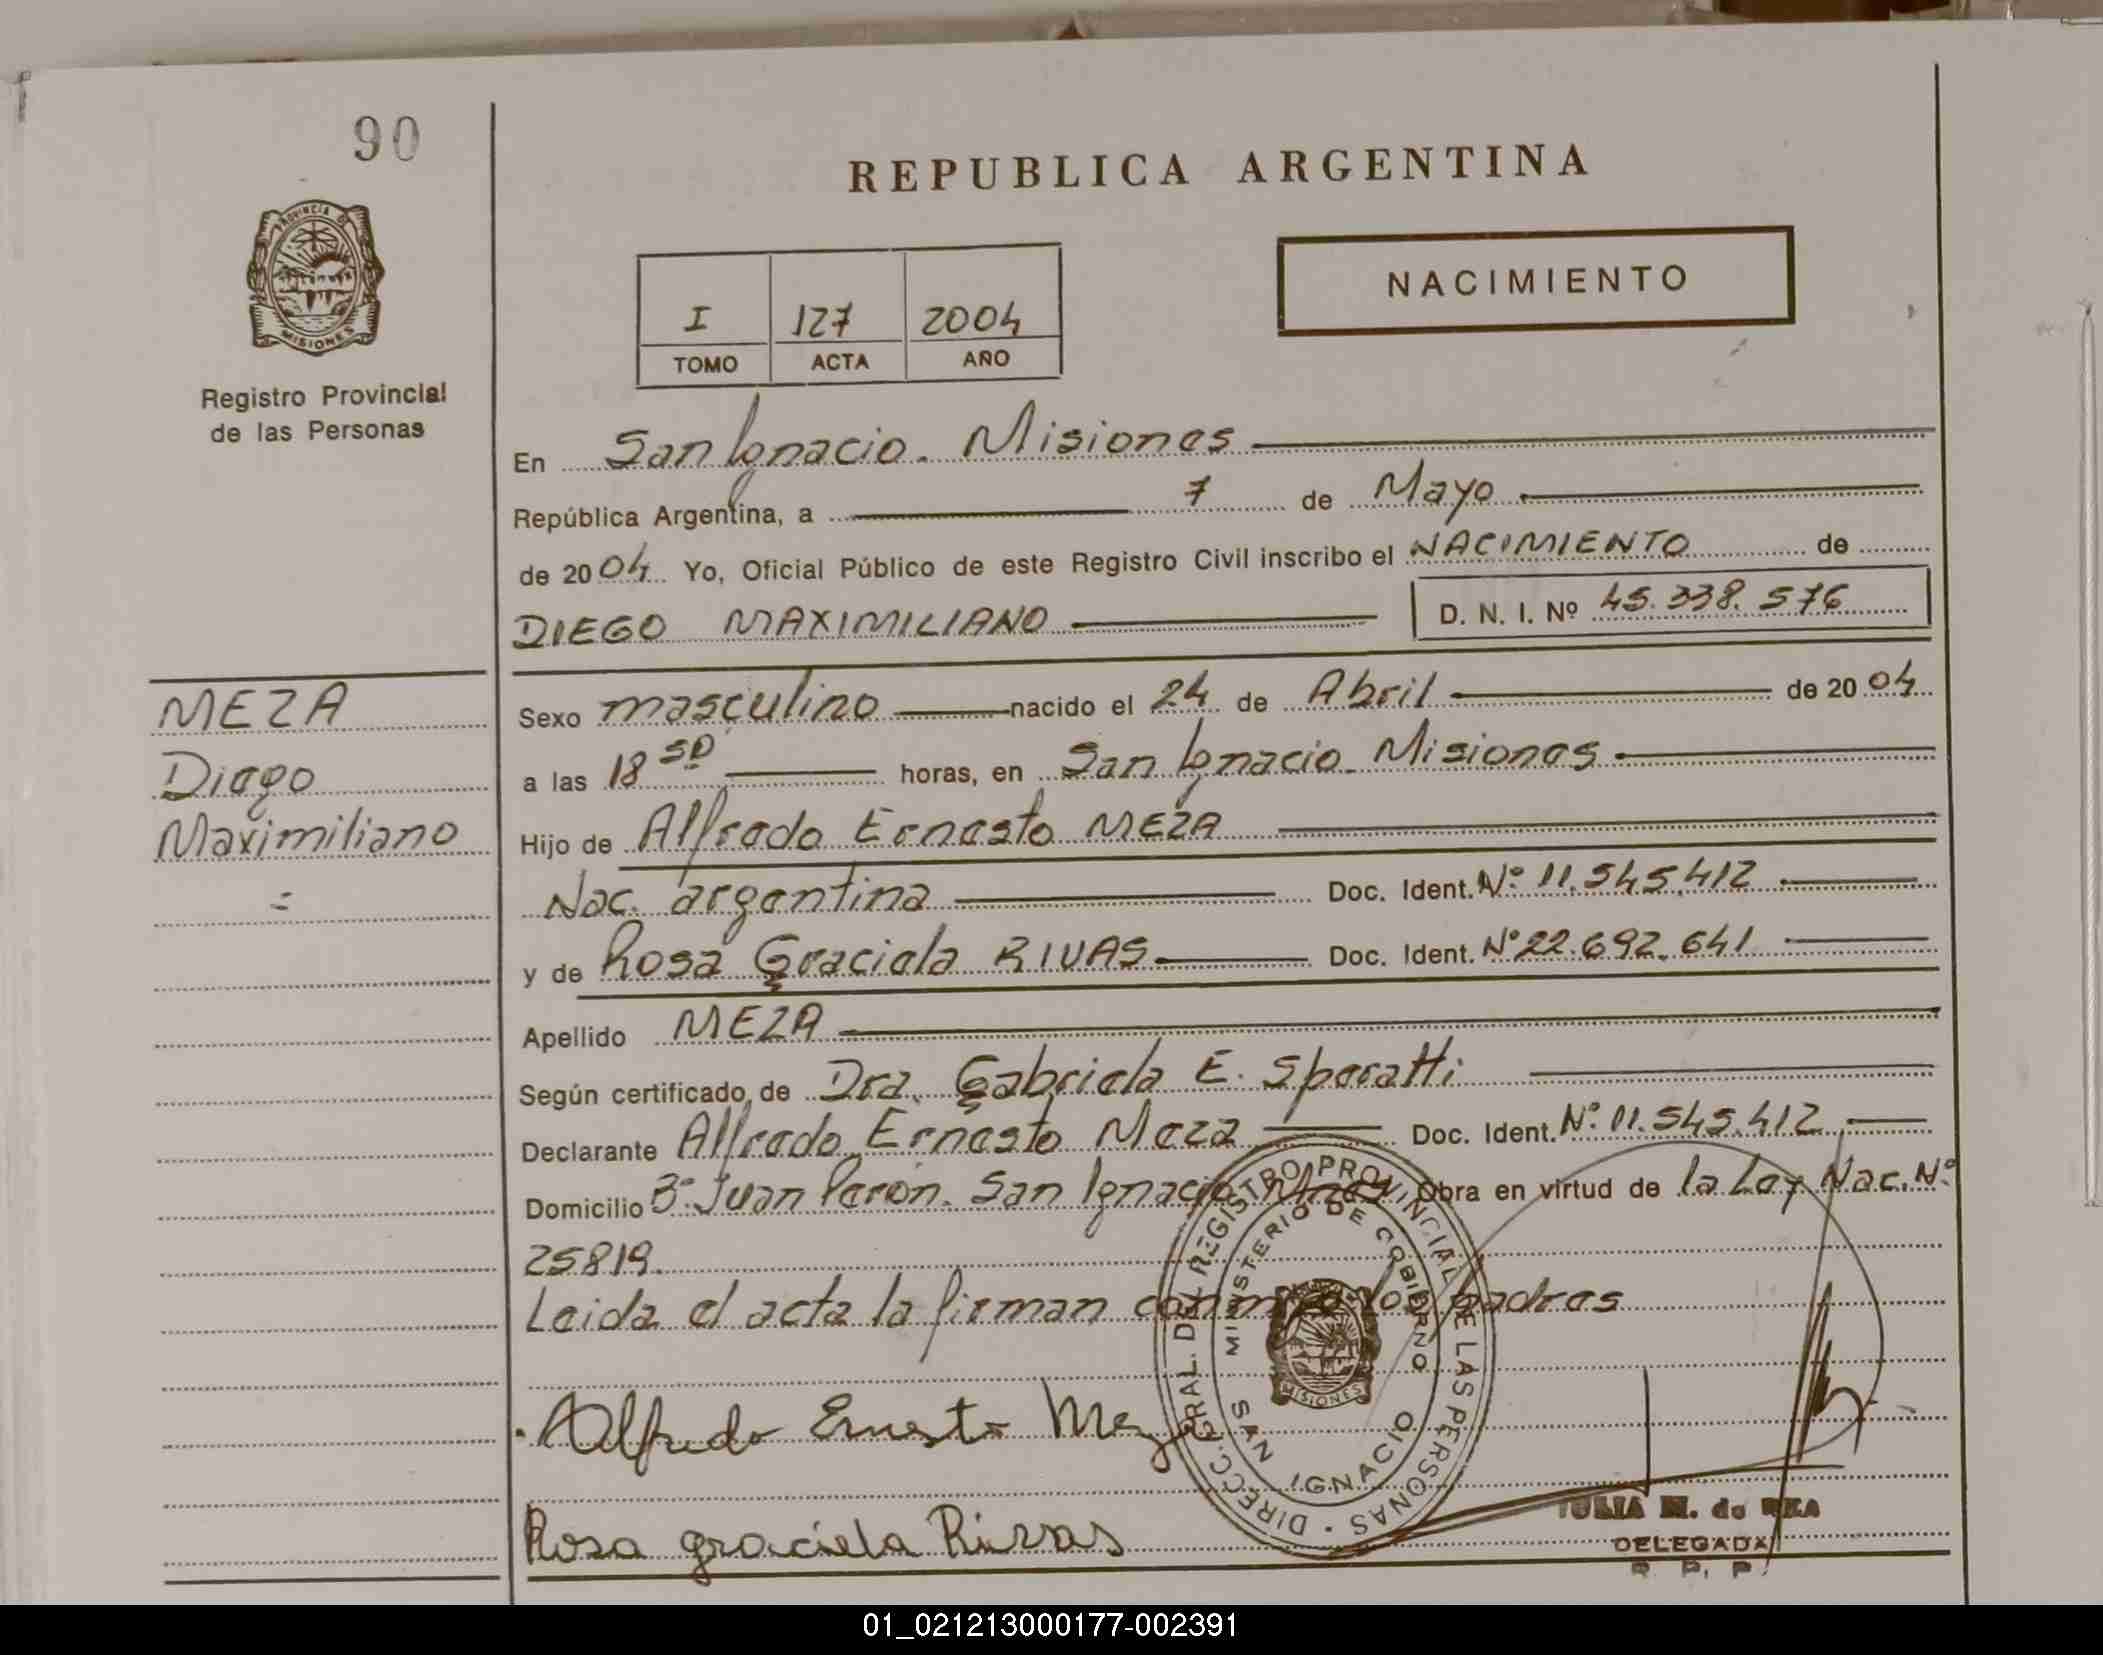 90
PROVINCIA DE
MISIONES
Registro Provincial
de las Personas
REPUBLICA ARGENTINA
NACIMIENTO
I 127 2004
TOMO ACTA AÑO
En San Ignacio. Misiones
República Argentina, a 7 de Mayo
de 2004 Yo, Oficial Público de este Registro Civil inscribo el NACIMIENTO de
DIEGO MAXIMILIANO D. N. I. Nº 45.338.576
MEZA
Diego
Maximiliano
=
Sexo masculino nacido el 24 de Abril de 2004
a las 18 50 horas, en San Ignacio. Misiones
Hijo de Alfredo Ernesto MEZA
Nac. argentina Doc. Ident. Nº 11.545.412
y de Rosa Graciela RIVAS Doc. Ident. Nº 22.692.641
Apellido MEZA
Según certificado de Dra. Gabriela E. Speratti
Declarante Alfredo Ernesto Meza Doc. Ident. Nº 11.545.412
Domicilio Bº Juan Perón. San Ignacio Mnes. Obra en virtud de la Ley Nac. Nº
25819.
Leida el acta la firman conmigo los padres
Alfredo Ernesto Meza
Rosa graciela Rivas
DIRECC. GRAL. DEL REGISTRO PROVINCIAL DE LAS PERSONAS
MINISTERIO DE GOBIERNO
MISIONES
SAN IGNACIO
JULIA M. de REA
DELEGADA
R. P. P.
01_021213000177-002391